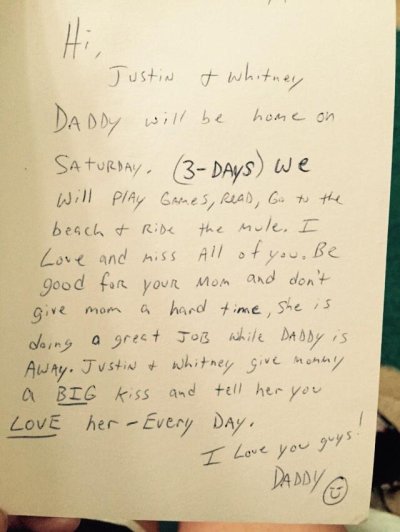 Hi,
Justin & Whitney
DADDY will be home on
SATURDAY. (3-DAYS) We
will PlAY GAMES, READ, Go to the
beach & RiDE the Mule. I
Love and miss All of you. Be
good foR youR Mom and don't
give mom a hard time, She is
doing a great JOB while DADDY is
AWAY. Justin & Whitney give mommy
a BIG kiss and tell her you
LOVE her - Every DAY.
I Love you guys!
DADDY